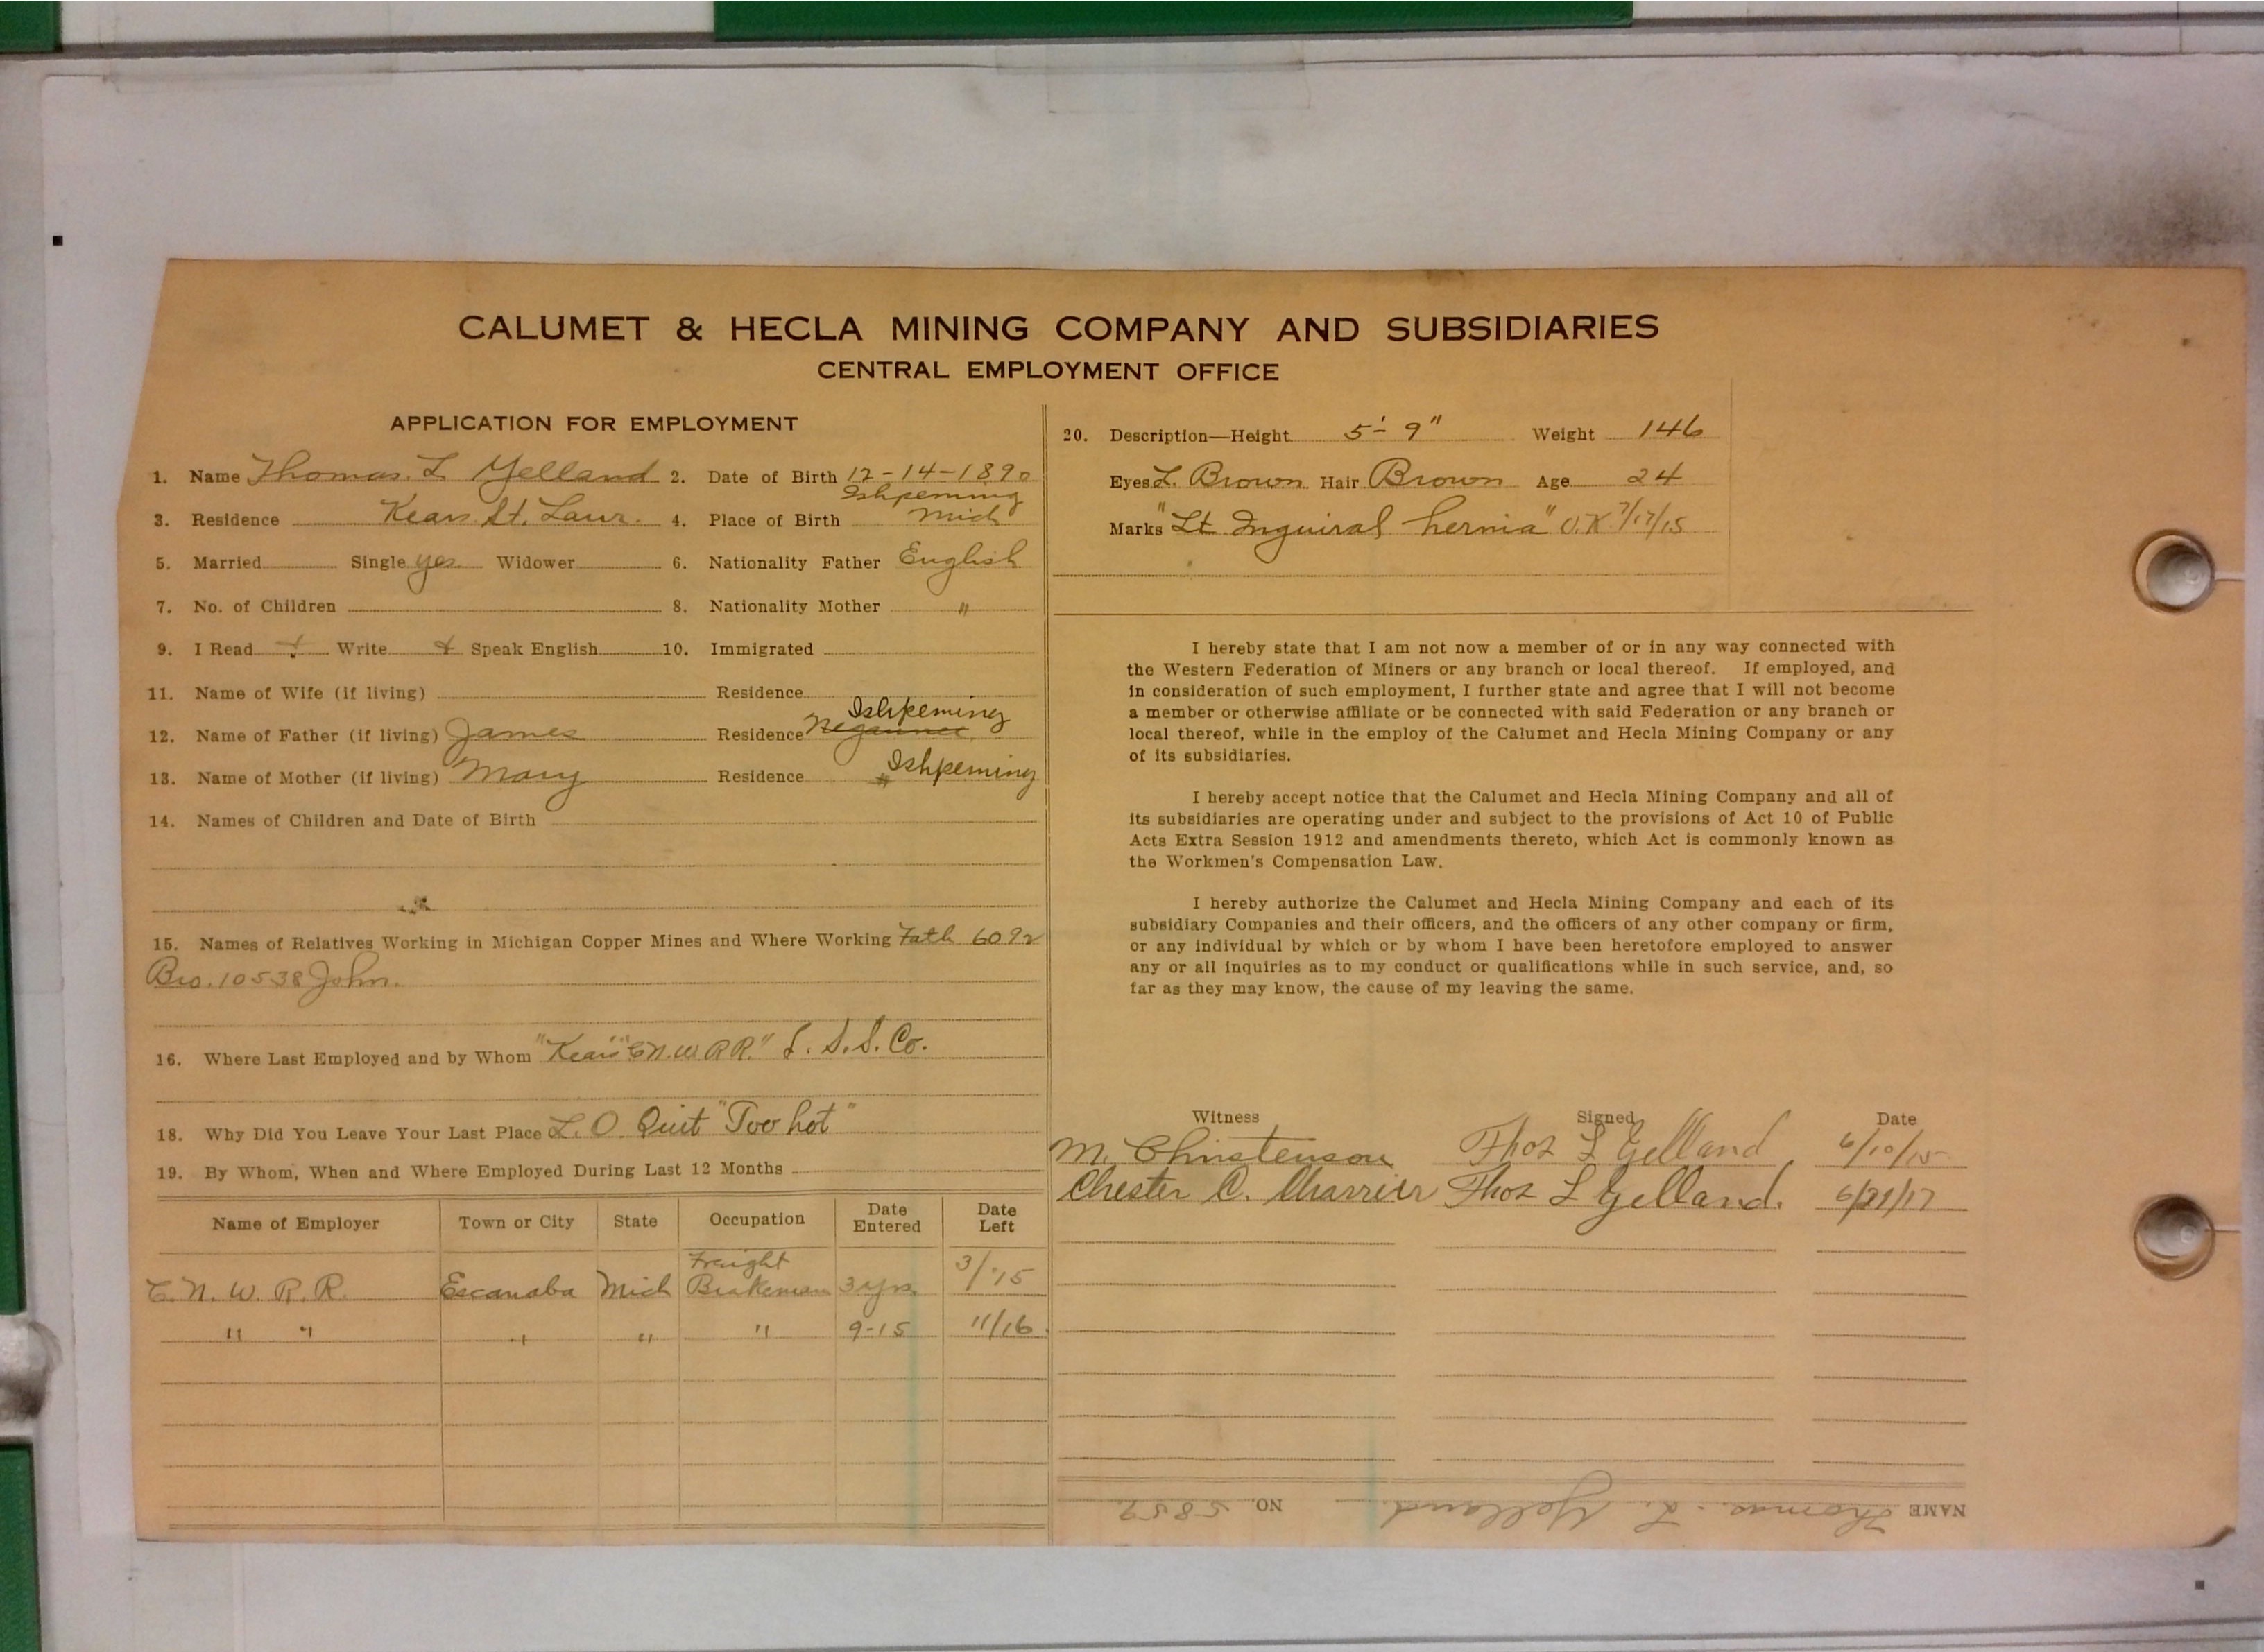 CALUMET & HECLA MINING COMPANY AND SUBSIDIARIES
CENTRAL EMPLOYMENT OFFICE
APPLICATION FOR EMPLOYMENT
1. Name Thomas. L Yelland 2. Date of Birth 12-14-1890
3. Residence Kears. St. Laur. 4. Place of Birth Ishpeming Mich
5. Married Single yes Widower 6. Nationality Father English
7. No. of Children 8. Nationality Mother "
9. I Read + Write + Speak English 10. Immigrated
11. Name of Wife (if living) Residence
12. Name of Father (if living) James Residence Negaunee Ishpeming
13. Name of Mother (if living) Mary Residence " Ishpeming
14. Names of Children and Date of Birth
15. Names of Relatives Working in Michigan Copper Mines and Where Working Fath 6092
Bro. 10538 John.
16. Where Last Employed and by Whom "Kears" "C N. W R R." L. S. S. Co.
18. Why Did You Leave Your Last Place L. O. Quit "Too hot"
19. By Whom, When and Where Employed During Last 12 Months
Name of Employer Town or City State Occupation Date Entered Date Left
C. N. W. R. R. Escanaba Mich Freight Brakeman 3 yrs. 3/'15
" " " " " 9-15 11/16.
20. Description—Height 5'- 9" Weight 146
Eyes L. Brown Hair Brown Age 24
Marks "Lt Inguiral hernia" O.K 7/17/15
I hereby state that I am not now a member of or in any way connected with
the Western Federation of Miners or any branch or local thereof. If employed, and
in consideration of such employment, I further state and agree that I will not become
a member or otherwise affiliate or be connected with said Federation or any branch or
local thereof, while in the employ of the Calumet and Hecla Mining Company or any
of its subsidiaries.
I hereby accept notice that the Calumet and Hecla Mining Company and all of
its subsidiaries are operating under and subject to the provisions of Act 10 of Public
Acts Extra Session 1912 and amendments thereto, which Act is commonly known as
the Workmen's Compensation Law.
I hereby authorize the Calumet and Hecla Mining Company and each of its
subsidiary Companies and their officers, and the officers of any other company or firm,
or any individual by which or by whom I have been heretofore employed to answer
any or all inquiries as to my conduct or qualifications while in such service, and, so
far as they may know, the cause of my leaving the same.
Witness Signed Date
M. Christenson Thos L Yelland 6/10/15
Chester C. Charrier Thos L Yelland. 6/29/17
NAME Thomas. L. Yelland. NO. 5859